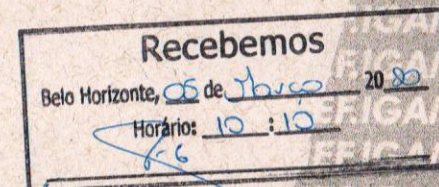 Recebemos
Belo Horizonte, 05 de Março 2020
Horário: 10 : 10